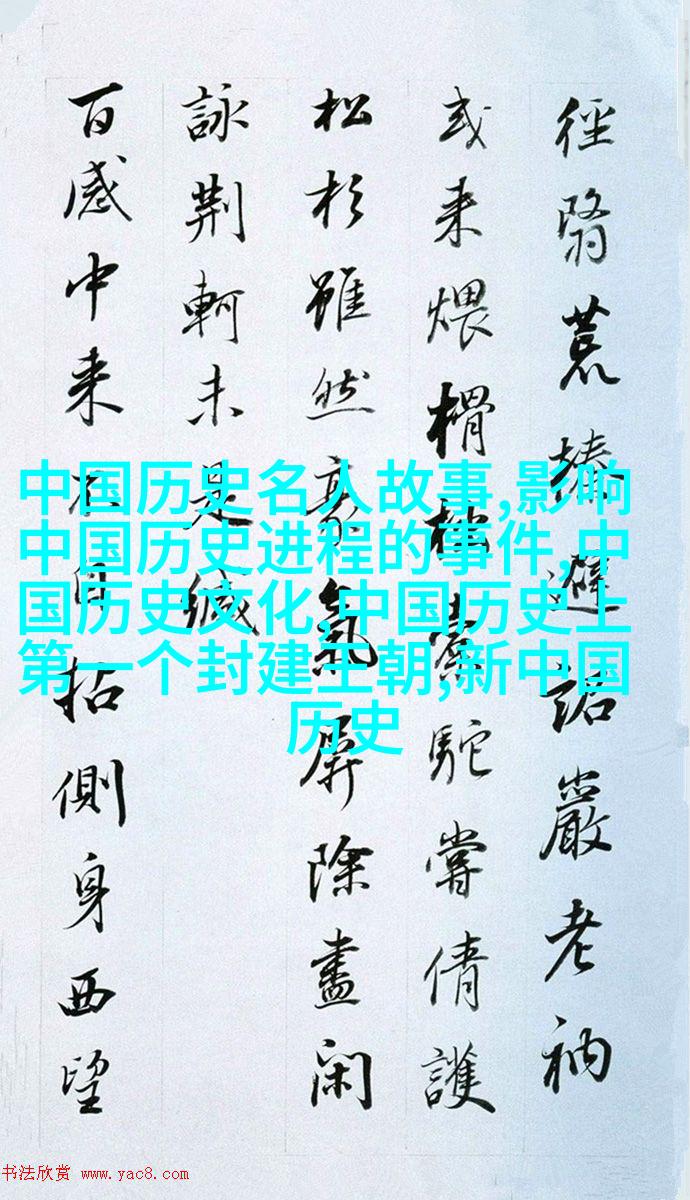 徑翳荒榛避詬嚴老衲
或来煨榾柮橐駝嘗倩護
松杉雖然豪氣屏除盡閑
詠荆軻未是緘
百感中来不自拈側身西望
中国历史名人故事,影响
中国历史进程的事件,中
国历史文化,中国历史上
第一个封建王朝,新中国
历史
书法欣赏 www.yac8.com